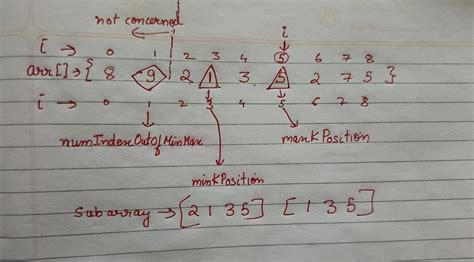 not concerned
i
i → 0 1 2 3 4 5 6 7 8
arr[] → { 8 9 2 1 3 5 2 7 5 }
i → 0 1 2 3 4 5 6 7 8
numIndexOutOfMinMax maxKPosition
minKPosition
Subarray → [2 1 3 5] [1 3 5]